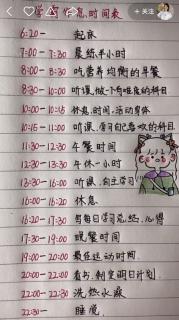 + 关注
学习作息时间表
6:20— 起床
7:00— 7:30 晨练半小时
8:00— 8:30 吃营养均衡的早餐
8:30— 10:00 听课,做个有难度的科目
10:00—10:15 休息,时间,活动身体
10:15— 11:00 听课,学习自己喜欢的科目
11:30— 12:30 午餐时间
12:30—13:30 午休一小时
13:30—16:00 听课,自主学习
16:00—16:20 休息
16:20—17:30 写每日学习总结,心得
17:30—19:00 晚餐时间
19:00—20:00 最佳运动时间
20:00—22:00 看书,制定明日计划
22:00—22:30 洗热水澡
22:30— 睡觉